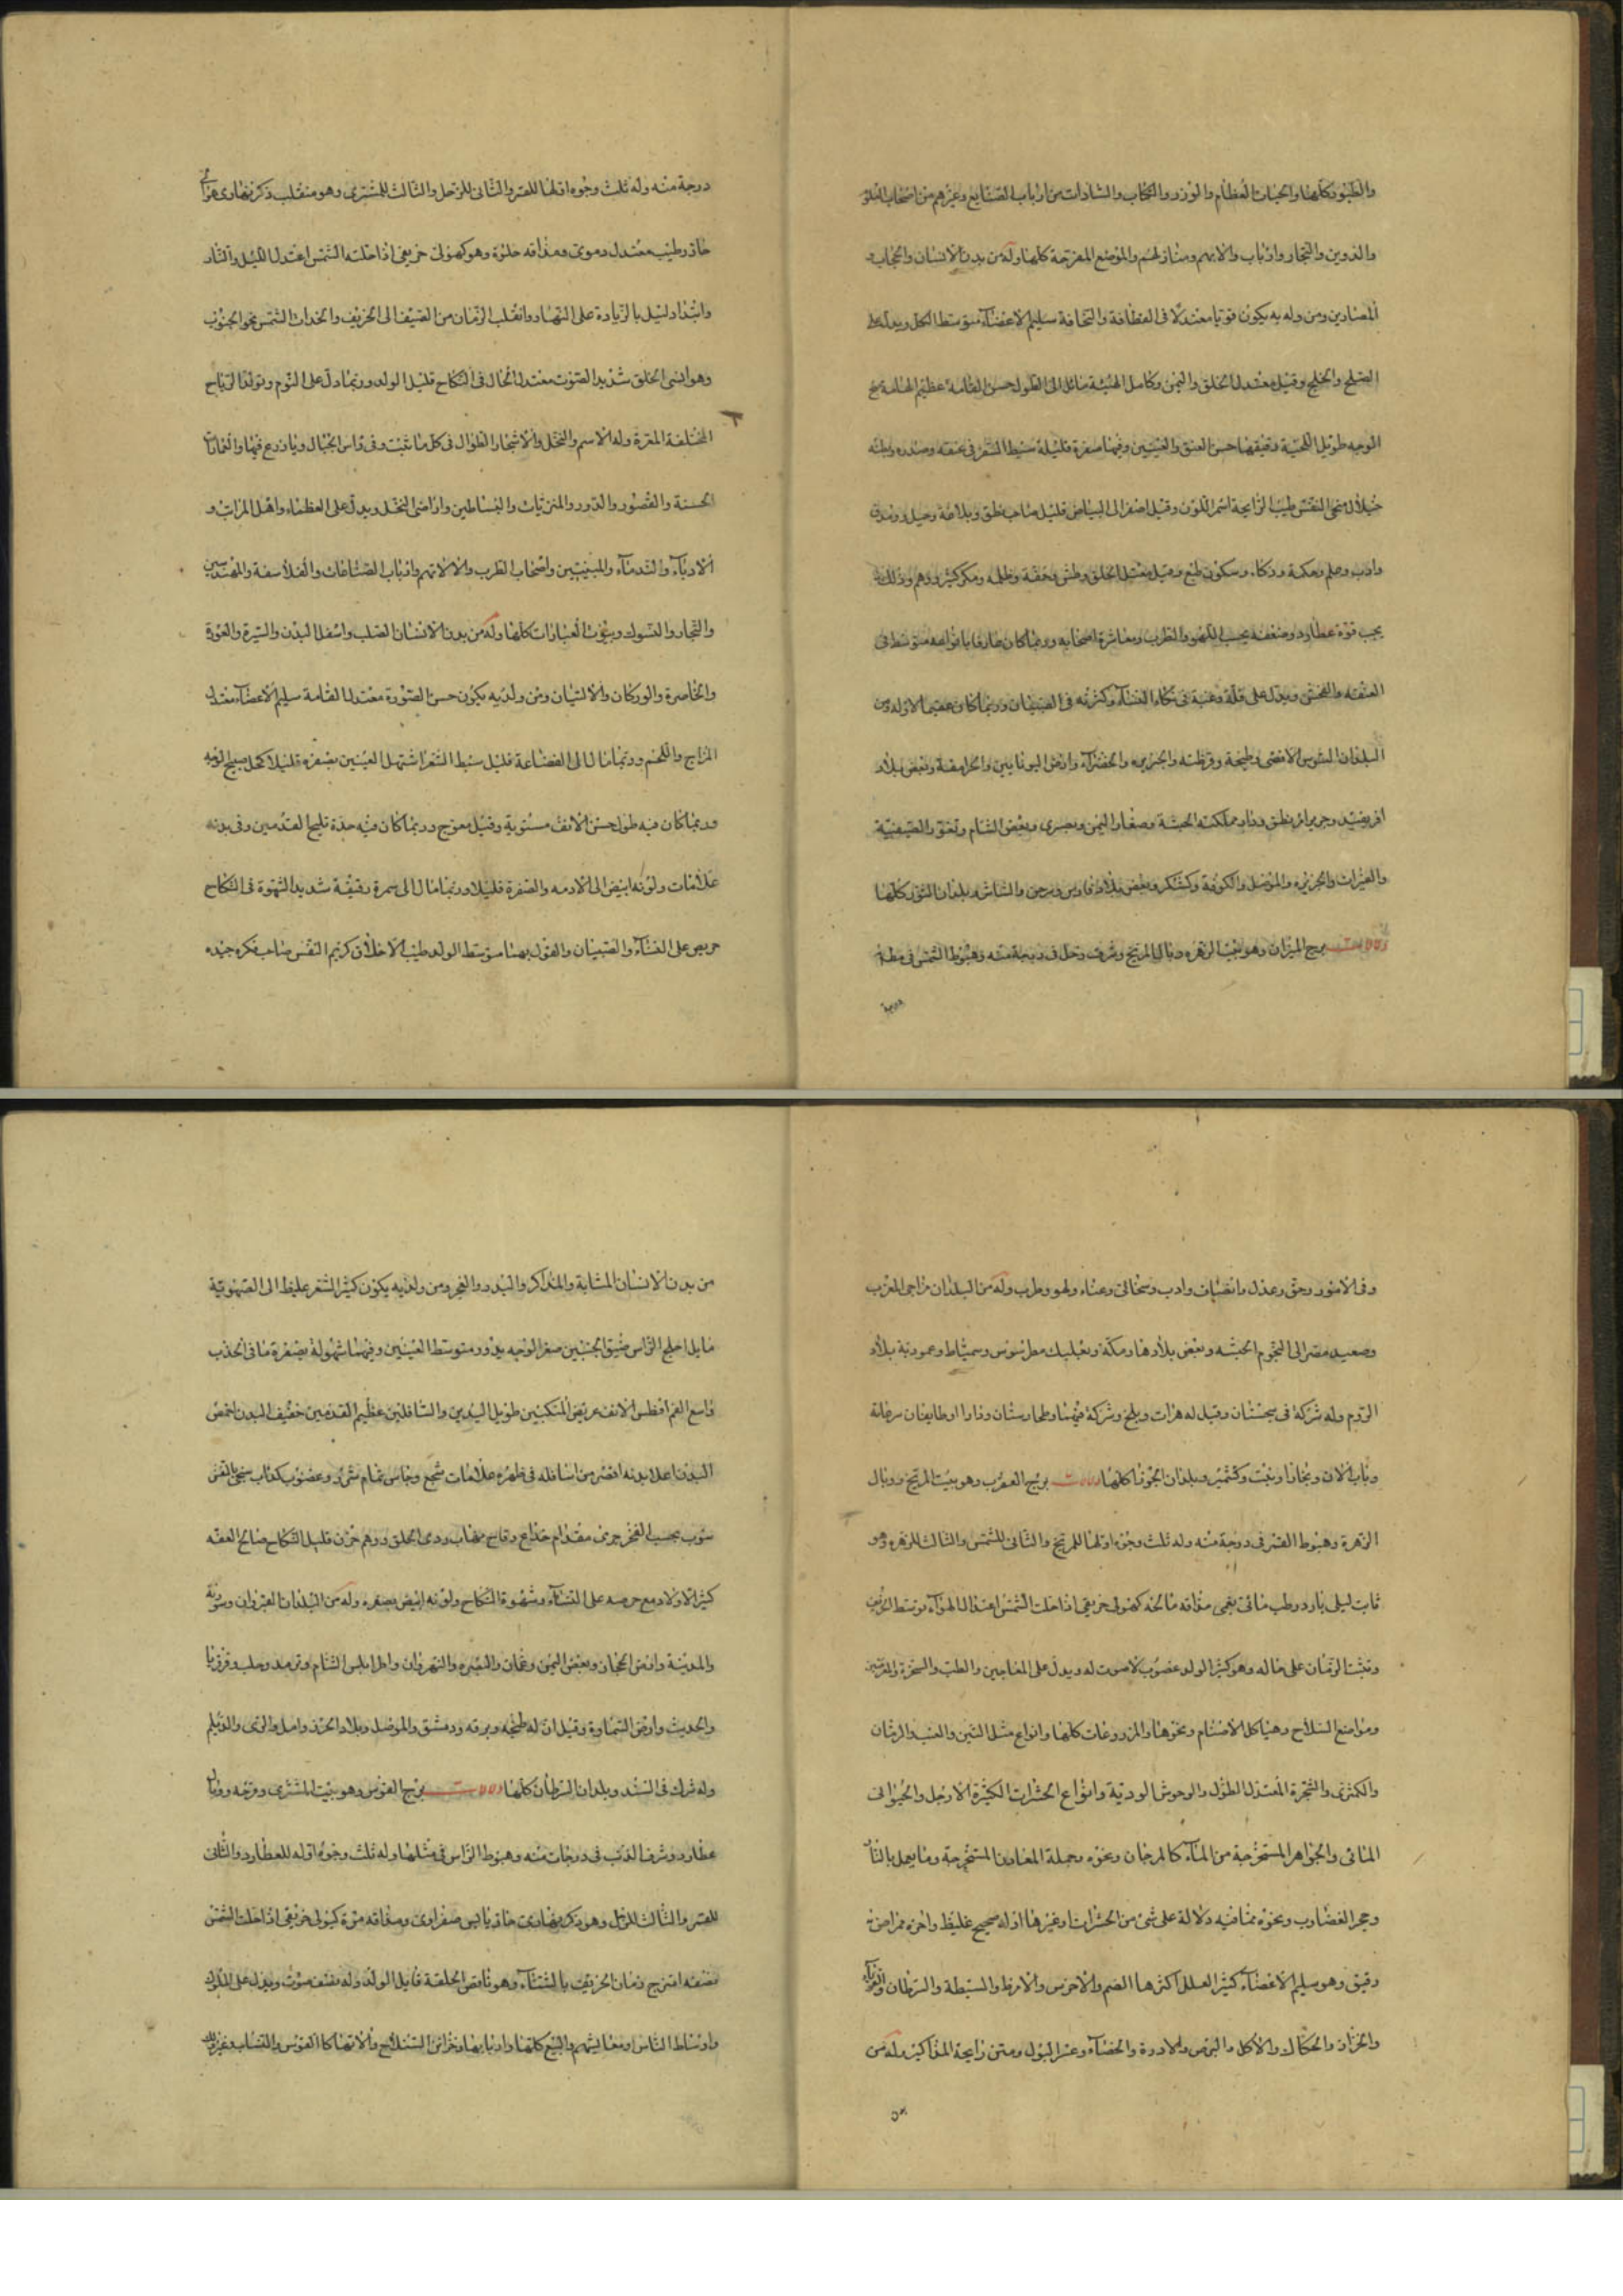 والطيور كلها والحيات العظام والوزر والكتاب والسادات من ارباب الصنايع وغيرهم من اصحاب العلو
والدوين والتجار وارباب والابهم ومنازلهم والموضع المفرحة كلها وله من بدن الانسان والحجاب و
المصارين ومن ولد به يكون قويا معتدلا فى الفظافة والنحافة سليم الاعضآء متوسط الكل ويدل على
الصلح والخلج وقيل معتدل الخلق واليمن وكامل الهيئة مائل الى الطول حسن القامة عظيم الهامة
الوجه طويل اللحية دقيقها حسن العنق والعينين وفيها صفرة قليلة سبط الشعر فى عنقه وصدره وبطنه
خيلان سخى النفس طيب الرايحة اسمر اللون وقيل اصفر الى البياض قليل صاحب نطق وبلاغة وحيل وصدق
وادب وحلم وحكمة وذكاء وسكون طبع وقيل معتدل الخلق وطش وخفة وظلمه ومكر كثير ووهم وذلك
بحب قوة عطارد وضعفه يحب اللهو والطرب ومعاشرة اصحابه وربما كان عارفا بانواعه متوسط فى
العفة والفحش ويدل على قلة رغبة فى نكاح النسآء وكثرته فى الصبيان وربما كان عقيما الاوله ومن
البلدان السوس الاقصى وطنجة وقرطنه والجزيره والخضرآء وارض اليونانيين والجرامقة وبعض بلاد
افريقيه وجرير ودار مملكته الحبشة وصغار اليمن وبصرى وبعض الشام
والفرات والجزيره والموصل والكوفة وكسكر وبعض بلاد فارس والشاش وبلدان الثور كلها
برج الميزان وهو بيت الزهره وبال المريخ وشرف زحل فى درجة منه وهبوط الشمس فى مثله
درجة
درجة منه وله ثلث وجوه اولها للقمر والثانى للزحل والثالث للمشترى وهو منقلب ذكر نهارى هوائى
حار رطيب معتدل دموى ومذاقه حلوة وهو كهولى خريفى اذا حلته الشمس اعتدل الليل والنهار
وابتدا دليل بالزيادة على النهار وانقلب الزمان من الصيف الى الخريف واتحدات الشمس نحو الجنوب
وهو انسى الخلق شديد الصوت معتدل الحال فى النكاح قليل الولد وربما دل على النوم وتولد الرياح
المختلفة المقرة وله الاسم والنخل والاشجار الطوال فى كل ما تنبت وفى راس الجبال ويازرع فيها والعمارات
الحسنة والقصور والدور والمنزيات والبساطين واراضى النخل ويدل على العظماء واهل المراتب و
الادبآء والندمآء والمنيتين واصحاب الطرب والالاتهم وارباب الصناعات والفلاسفة والمهندسين
والتجار والنسوك وبيوت العبادات كلها وله من بدن الانسان الصلب واسفل البدن والسرة والعورة
والخاصرة والوركان والاليتان ومن ولد به يكون حسن الصورة معتدل القامة سليم الاعضآء معتدل
المزاج واللحم وربما مال الى القضاعة قليل سبط الشعر اشهل العينين بصفره قليل اكحل صبيح الوجه
وربما كان فيه طول حسن الانف مستوية وقيل معوج وربما كان فيه حدة مليح القدمين وفى بدنه
علامات ولونه ابيض الى الادمه والصفرة قليلا وربما مال الى سمرة رقيقة شديد الشهوة فى النكاح
حريص على النسآء والصبيان والقول بهما متوسط الولد طيب الاخلاق كريم النفس صاحب فكره جيده
وفى الامور وحق وعدل وانصاف وادب وسخائى وغناء ولهو وطرب وله من البلدان نواحى المغرب
وصعيد مصر الى التخوم الحبشه وبعض بلادها ومكة وبعلبك وطرسوس وسميساط وعمودية بلاد
الروم وله شركة فى سجستان وقيل له هرات وبلخ وشركة فيهما وطخارستان
وباب الان وبخارا وتبت وكشمير وبلدان الجوزا كلها برج العقرب وهو بيت المريخ ووبال
الزهرة وهبوط القمر فى درجة منه وله ثلث وجوه اولها للمريخ والثانى للشمس والثالث للزهره وهو
ثابت ليلى بارد رطب مائى بلغمى مذاقه مالحه كهولى خريفى اذا حلت الشمس اعتدال الهوآء توسط الخريف
وتثبت الزمان على حاله وهو كثير الولد عضوب لاصوت له ويدل على المعاجين والطب والسحرة
ومواضع السلاح وهياكل الاصنام ونحوها والمزروعات كلها وانواع مثل التين والعنب والرمان
والكمثرى والشجرة المعتدل الطول والوحوش الوذية وانواع الحشرات الكثيرة الارجل والحيوانى
المائى والجواهر المستخرجة من المآء كالمرجان ونحوه وجملة المعادن المستخرجة وما يعمل بالنار
وحجر القضاوب ونحوه مما فيه دلالة على شئ من الحشرات وغيرها اوله صحيح غليظ واخره ممراض
رقيق وهو سليم الاعضآء كثير العلل اكثرها الصم والاخرس والابرط والسبطة والسرطان
والخراز والحكاك والاكل والبرص والادرة والخصآء وعسر البول ومتن رايحة المذاكير وله من
من بدن الانسان المثانة والمذاكر والبدر والفجر ومن ولد به يكون كثير الشعر غليظا الى الصهوبة
مايل اجلح الراس ضيق الجبين صغر الوجه يدور متوسط العينين وفيهما شهولة بصفرة ما فى الحدب
واسع الفم افطس الانف عريض المنكبين طويل اليدين والساقين عظيم القدمين خفيف البدن اخمص
البدن اعلا بدنه اقصر من اسافله فى ظهره علامات شجع وجاس نمام شرى وعضوب كذاب سخى بالنفس
يحب الفخر جرى مقدام خداع وقاس مهاب ردى الخلق ووهم حزن قليل النكاح صالح العفه
كثير الاولاد مع حرصه على النسآء وشهوة النكاح ولونه ابيض بصفره وله من البلدان القيروان وسورية
والمدينة وارض الحجاز وبعض اليمن وعمان والبصره والنهروان واطرابلس الشام وترمد وحلب
والحديث وارض السماوة وقيل ان له طنجه وبرقه ودمشق والموصل وبلاد الخزر وامل والرى والديلم
وله شرك فى السند وبلدان السرطان كلها برج القوس وهو بيت المشترى وفرحه ووبال
عطارد وشرف الذنب فى درجات منه وهبوط الراس فى مثلها وله ثلث وجوه اوله للعطارد والثانى
للقمر والثالث للزحل وهو ذكر نهارى حار يابس صفراوى ومذاقه مرة كهولى خريفى اذا حلت الشمس
نصفه امتزج زمان الخريف بالشتآء وهو ناقص الخلقة قابل الولد وله نصف صوت ويدل على الملوك
واوساط الناس ومعايشهم والبيع كلها واربابها وخزائن السلاح والاتها كالقوس والنشاب